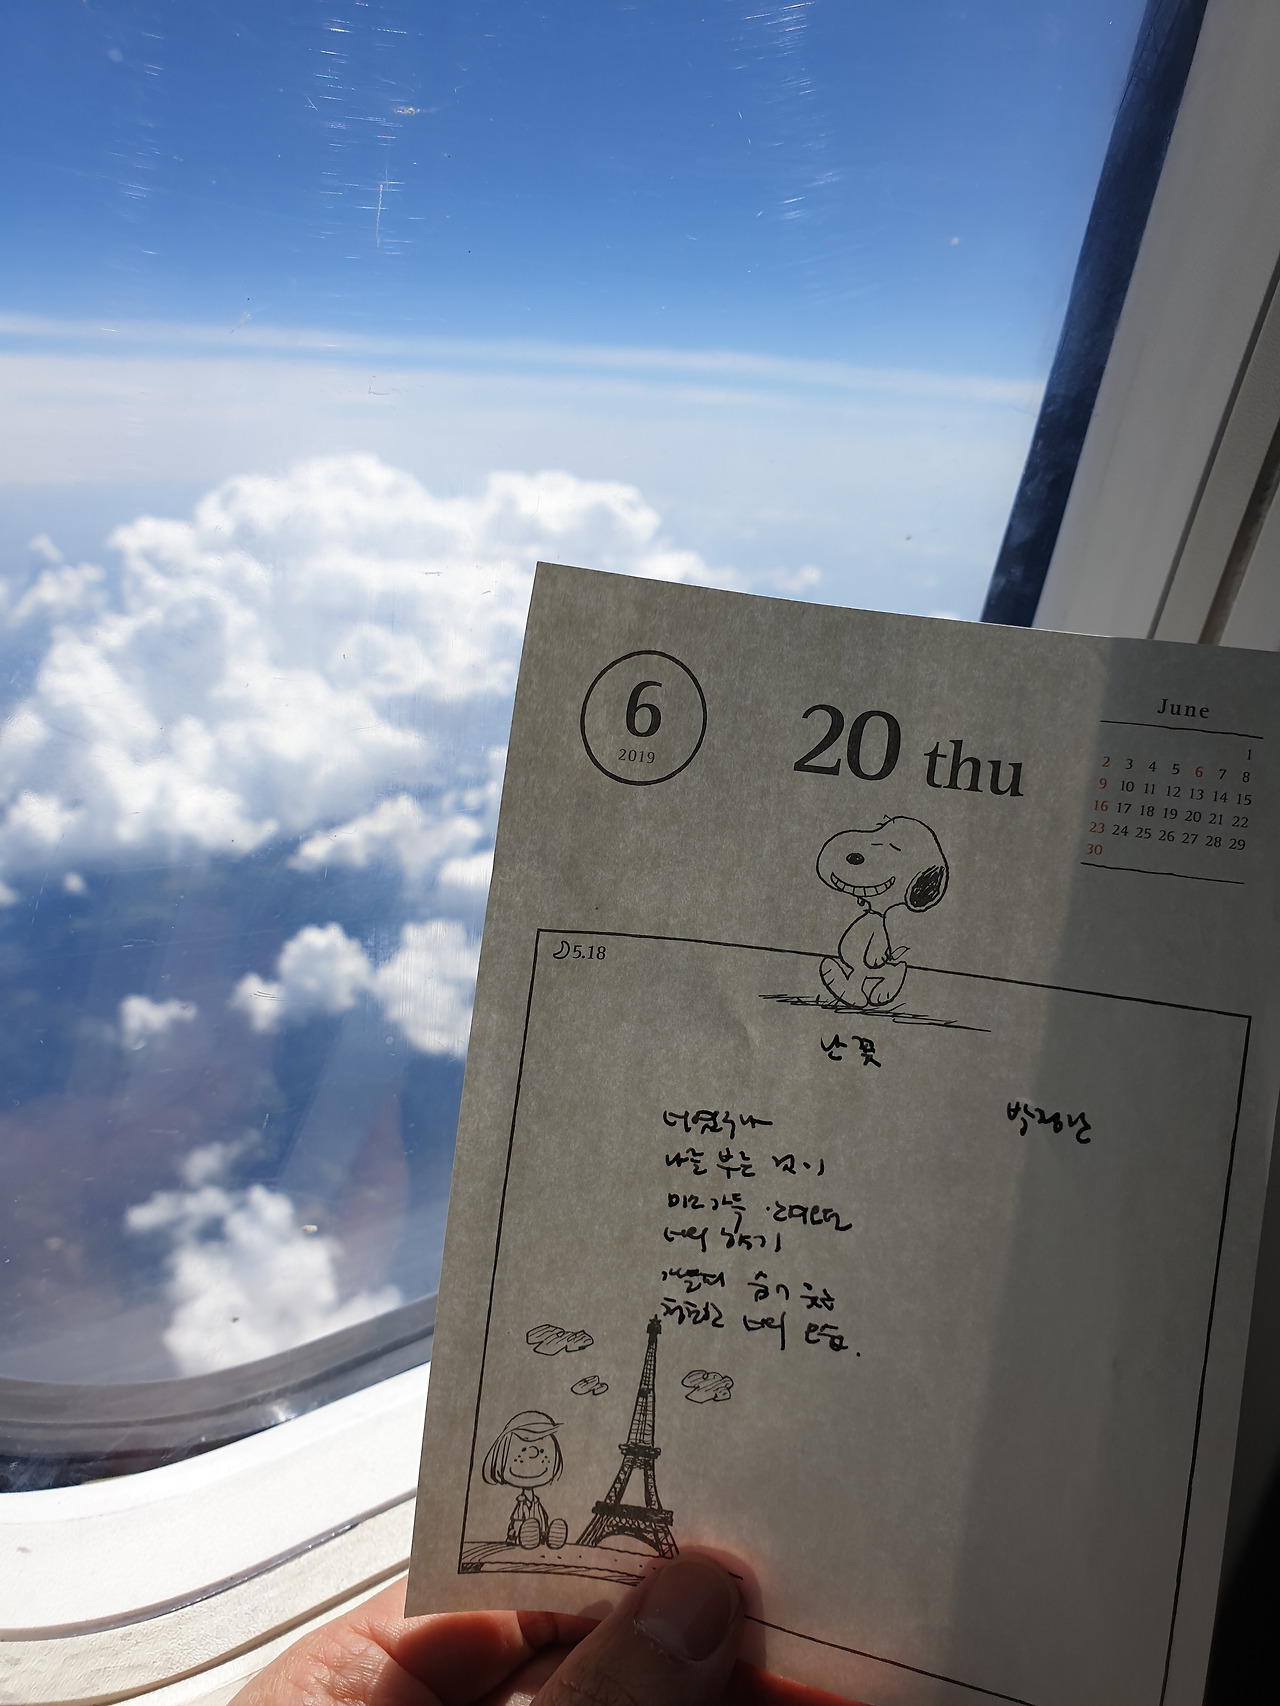 6
2019
20 thu
June
1
2 3 4 5 6 7 8
9 10 11 12 13 14 15
16 17 18 19 20 21 22
23 24 25 26 27 28 29
30
5.18
난 꽃
너였구나
나를 부른 것이
너의 향기
숨어 웃는
청초한 너의 모습.